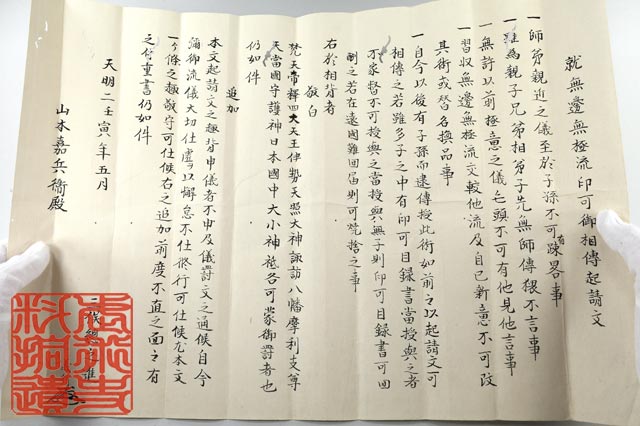 就無邊無極流印可御相傳起請文
一師弟親近之儀至於子孫不可有疎畧事
一雖為親子兄弟相弟子先無師傳猥不言事
一無許以前極意之儀乞頭不可有他見他言事
一習収無邊無極流文較他流及自己新意不可改
其術或替名換品事
一自今以後有子孫而遠傳授此術如前之以起請文可
相傳之若雖多子之中有印可目録書當授與之者
不家督不可授與之當授與無子則印可目録書可回
酬之若在遠國難回届則可焚捨之事
右於相背者
敬白
梵天帝釋四大天王伊勢天照大神諏訪八幡摩利支尊
天當國守護神日本國中大小神祇各可蒙御罸者也
仍如件
追加
本文起請文之趣背申儀者不申及儀罸文之通候自今
彌御流儀大切仕虚以懈怠不仕修行可仕候尤本文
一ヶ條之趣敬守可仕候右之追加前度不直之面々有
之付重書仍如件
天明二壬寅年五月
山本嘉兵衛殿